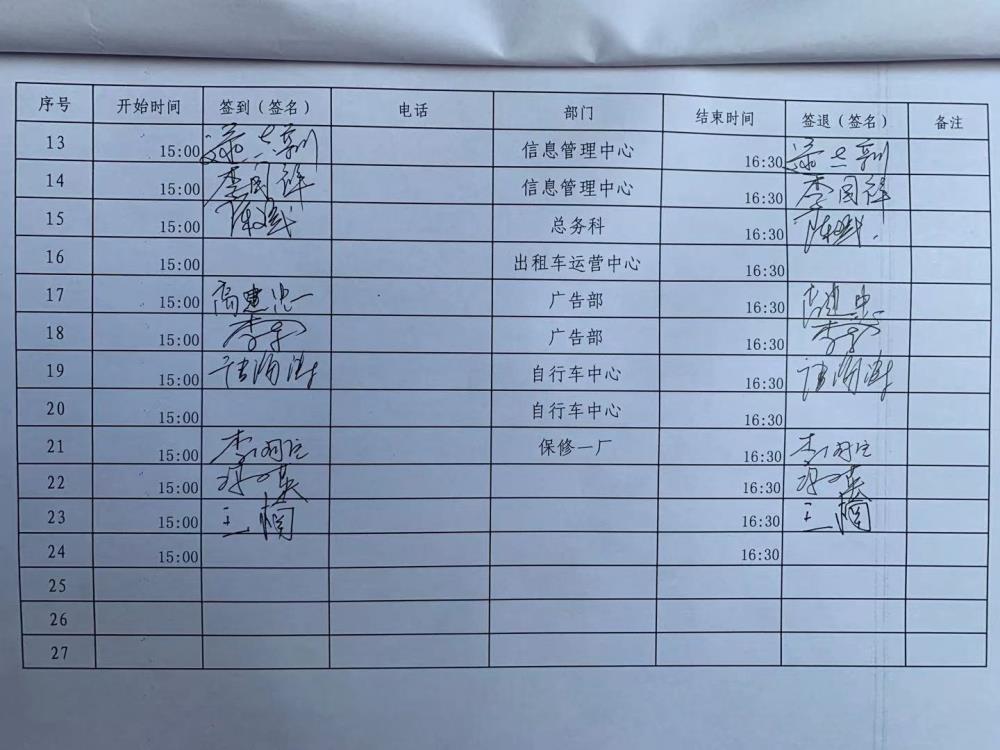 序号 开始时间 签到（签名） 电话 部门 结束时间 签退（签名） 备注
13 15:00 信息管理中心 16:30
14 15:00 李国锋 信息管理中心 16:30 李国锋
15 15:00 陈斌 总务科 16:30 陈斌
16 15:00 出租车运营中心 16:30
17 15:00 高建忠 广告部 16:30 高建忠
18 15:00 李军 广告部 16:30 李军
19 15:00 自行车中心 16:30
20 15:00 自行车中心 16:30
21 15:00 保修一厂 16:30
22 15:00 16:30
23 15:00 王楠 16:30 王楠
24 15:00 16:30
25
26
27